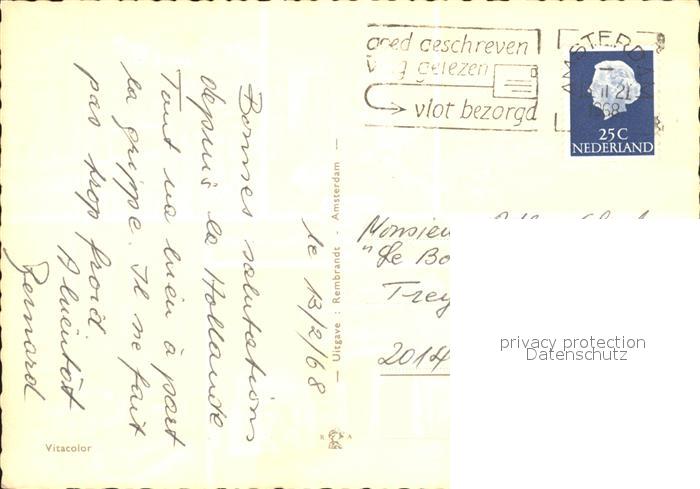 Bonnes salutations
depuis la Hollande
Tout va bien à part
la grippe. Il ne fait
pas trop froid
A bientôt
Bernard
le 13/2/68
Vitacolor
— Uitgave : Rembrandt - Amsterdam —
R A
goed geschreven
vlug gelezen
vlot bezorgd
AMSTERDAM
1968
25 C
NEDERLAND
Monsieur
"Le Bo
Trey
2014
privacy protection
Datenschutz